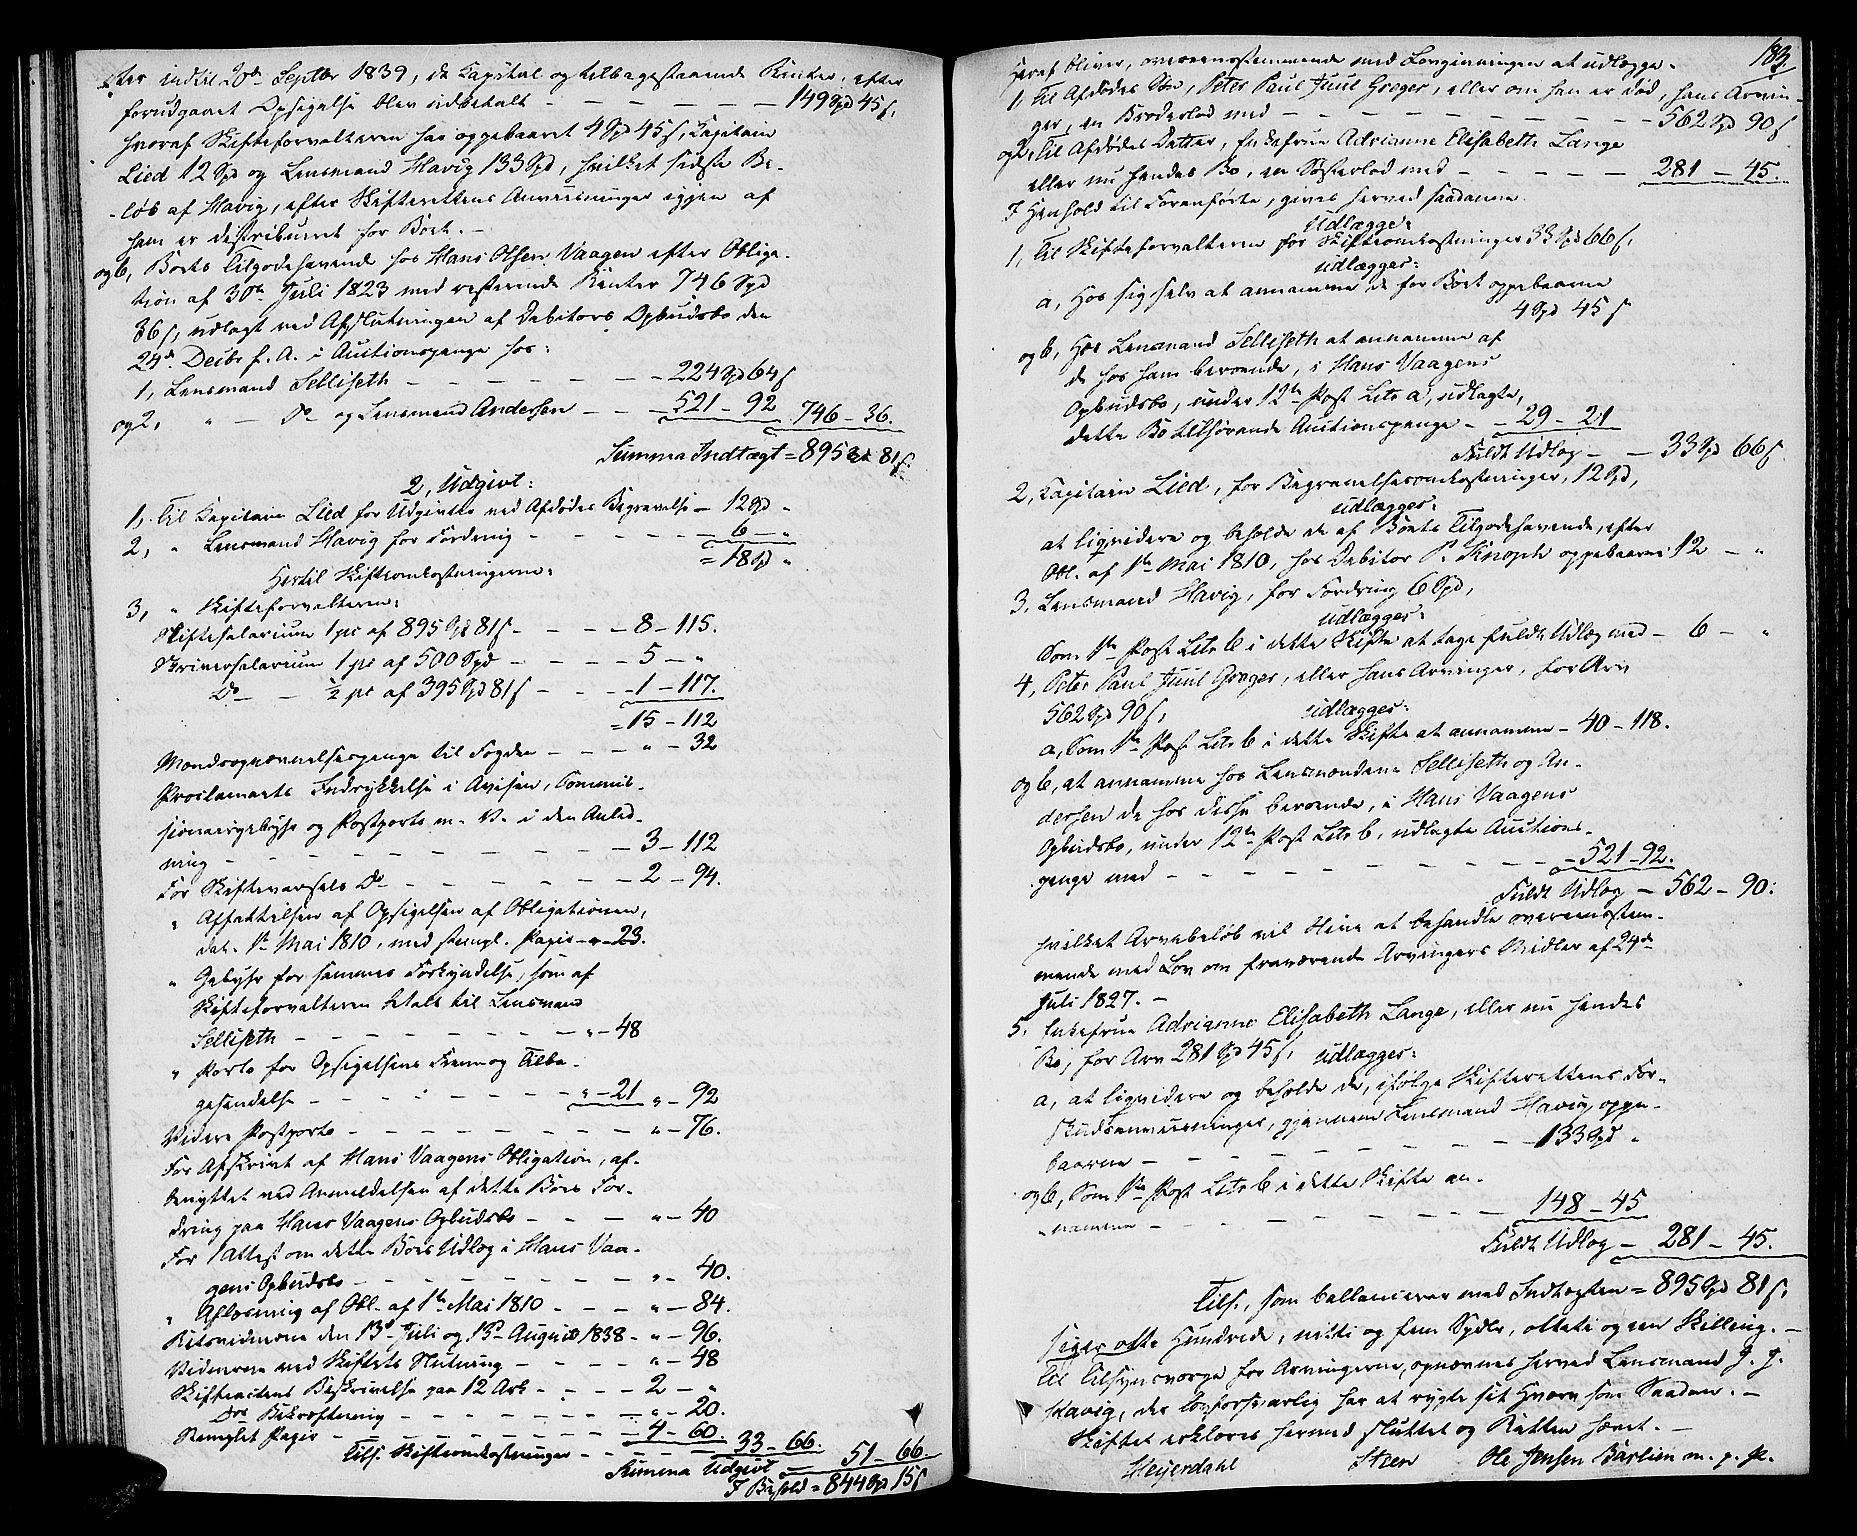 ter indtil 20de Septbr 1839, da Kapital og tilbagestaaende Renter, efter
forudgaaet Opsigelse blev udbetalt — — — — — 149 Spd 45 s,
hvoraf Skifteforvalteren har oppebaaret 4 Spd 45 s, Kapitain
Lied 12 Spd og Lensmand Havig 133 Spd, hvilket sidste Be-
-løb af Havig, efter Skifterettens Anvisninger igjen af
ham er distribueret for Boet. —
og b, Boets Tilgodehavende hos Hans Olsen Vaagen efter Obliga-
tion af 30te Juli 1823 med resterende Renter 746 Spd
36 s, udlagt ved Afslutningen af Debitors Opbudsbo den
24de Decbr f. A. i Auctionspenge hos:
1, Lensmand Selliseth — — — — — 224 Spd 64 s
og 2, " — Do og Lensmand Andersen — — 521 — 92 746 — 36.
Summa Indtægt = 895 Spd 81 s.
2, Udgivt:
1, Til Kapitain Lied for Udgivter ved Afdødes Begravelse — 12 Spd "
2, " Lensmand Havig for Fordring — — — — 6 — "
= 18 Spd "
Hertil Skifteomkostningerne:
3, " Skifteforvalteren:
Skiftesalarium 1 pc af 895 Spd 81 s — — — 8 — 115.
Skriversalarium 1 pc af 500 Spd — — — 5 — "
Do — — ½ pc af 395 Spd 81 s — — 1 — 117.
= 15 — 112
Mændsopnævnelsespenge til Fogden — — — " — 32
Proclamaets Indrykkelse i Avisen, Commis-
sionairgebyhr og Postporto m. V. i den Anled-
ning — — — — — — — 3 — 112
For Skiftevarsels Do — — — — — 2 — 94.
" Affattelsen af Opsigelsen af Obligationen,
dat. 1te Mai 1810, med stempl. Papir — " — 23.
" Gebyhr for sammes Forkyndelse, som af
Skifteforvalteren betalt til Lensmand
Selliseth — — — — — — " — 48
" Porto for Opsigelsens Frem og Tilba-
gesendelse — — — — — " — 21 " — 92
Videre Postporto — — — — — — " — 76.
For Afskrivt af Hans Vaagens Obligation, af-
benyttet ved Anmeldelsen af dette Boes For-
dring paa Hans Vaagens Opbudsbo — — — " — 40
For Attest om dette Boes Udlæg i Hans Vaa-
gens Opbudsbo — — — — — — " — 40.
" Aflæsning af Obl. af 1te Mai 1810 — — — " — 84.
Retsvidnerne den 13de Juli og 15de August 1838 — " — 96.
Vidnerne ved Skiftets Slutning — — — " — 48
Skifteactens Beskrivelse paa 12 Ark — — — 2 — "
Dos Bekræftning — — — — — " — 20.
Stemplet Papir — — — — — — 4 — 60.
Tils. Skifteomkostninger — — — 33 — 66.
Summa Udgivt — 51 — 66.
I Behold = 844 Spd 15 s
183
Heraf bliver, overeensstemmende med Lovgivningen at udlægge.
1, Til Afdødes Søn, Peter Paul Juul Greger, eller om han er død, hans Arvin-
ger, en Broderlod med — — — — — — 562 Spd 90 s
og 2, Til Afdødes Datter, Enkefrue Adrianne Elisabeth Lange
eller nu hendes Bo, en Søsterlod med — — — — 281 — 45.
I Henhold til Foranførte, gives herved saadanne
Udlægge:
1, Til Skifteforvalteren for Skifteomkostninger 33 Spd 66 s,
udlægges:
a, Hos sig selv at annamme de for Boet oppebaarne
4 Spd 45 s
og b, Hos Lensmand Selliseth at annamme af
de hos ham beroende, i Hans Vaagens
Opbudsbo, under 12te Post Litr a, udlagte,
dette Bo tilhørende Auctionspenge — 29 — 21
Fuldt Udlæg — — 33 Spd 66 s.
2, Kapitain Lied, for Begravelsesomkostninger, 12 Spd,
udlægges:
at liqvidere og beholde de af Boets Tilgodehavende, efter
Obl. af 1te Mai 1810, hos Debitor P. Knoph oppebaarne 12 — "
3, Lensmand Havig, for Fordring 6 Spd,
udlægges:
Som 1te Post Litr b i dette Skifte at tage fuldt Udlæg med — 6 — "
4, Peter Paul Juul Greger, eller hans Arvinger, for Arv
562 Spd 90 s, udlægges:
a, Som 1te Post Litr b i dette Skifte at annamme — 40 — 118.
og b, at annamme hos Lensmændene Selliseth og An-
dersen de hos disse beroende, i Hans Vaagens
Opbudsbo, under 12te Post Litr b, udlagte Auctions-
penge med — — — — — — — 521 — 92.
Fuldt Udlæg — 562 — 90.
hvilket Arvebeløb vil blive at behandle overeensstem-
mende med Lov om fraværende Arvingers Midler af 24de
Juli 1827. —
5, Enkefrue Adrianne Elisabeth Lange, eller nu hendes
Bo, for Arv 281 Spd 45 s, udlægges:
a, at liqvidere og beholde de, ifølge Skifterettens For-
skudsanviisninger, gjennem Lensmand Havig oppe-
baarne — — — — — — — 133 Spd "
og b, Som 1te Post Litr b i dette Skifte an-
namme — — — — — — — 148 — 45
Fuldt Udlæg — 281 — 45.
Tils., som ballancerer med Indtægten = 895 Spd 81 s,
siger otte Hundrede, nitti og fem Spdlr, otteti og een Skilling. —
Til Tilsynsværge for Arvingerne, opnævnes herved Lensmand J. J.
Havig, der lovforsvarlig har at rygte sit Hverv som Saadan. —
Skiftet erklæres hermed sluttet og Retten hævet. —
Heyerdahl Steen Ole Jensen Bærlien m. p. P.